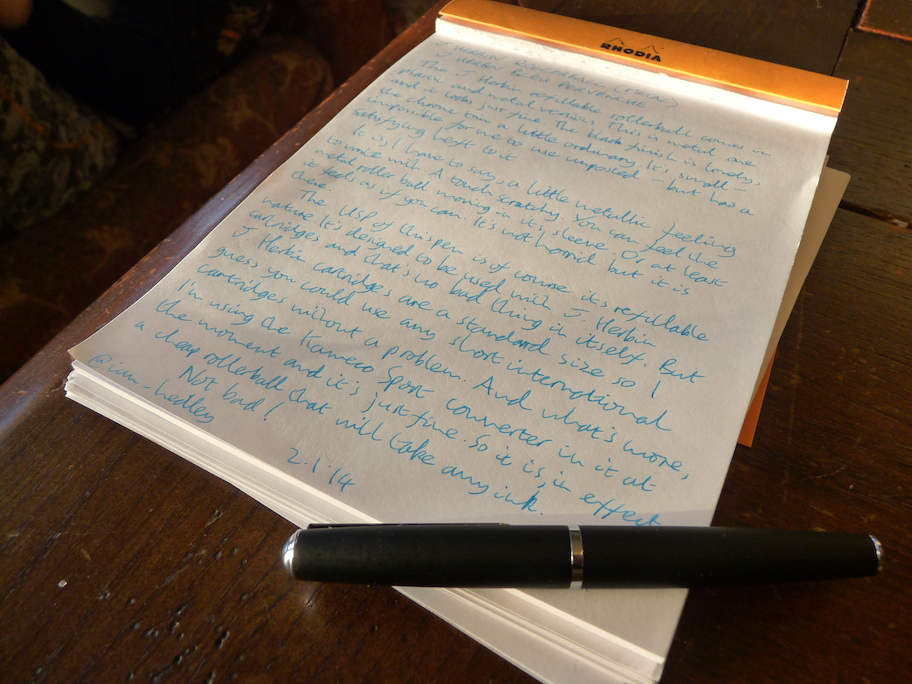 RHODIA
J HERBIN ROLLERBALL (METAL)
HERBIN BLEU PERVENCHE
The J Herbin refillable rollerball comes in
plastic and metal versions. This is metal one
and it looks just fine. The black finish is lovely,
the chrome trim a little ordinary. It's small -
impossible for me to use unposted - but has a
satisfying heft to it
It is, I have to say, a little metallic feeling
to write with. A touch scratchy. You can feel the
metal roller ball moving in its sleeve or at least
it feels as if you can. It's not horrid but it is
there.
The USP of this pen is of course its refillable
nature. It's designed to be used with J. Herbin
cartridges and that's no bad thing in itself. But
J Herbin cartridges are a standard size so I
guess you could use any short international
cartridges without a problem. And what's more,
I'm using the Kaweco Sport converter in it at
the moment and it is just fine. So it is, in effect
a cheap rollerball that will take any ink.
Not bad!
@ian_hedley
2.1.14